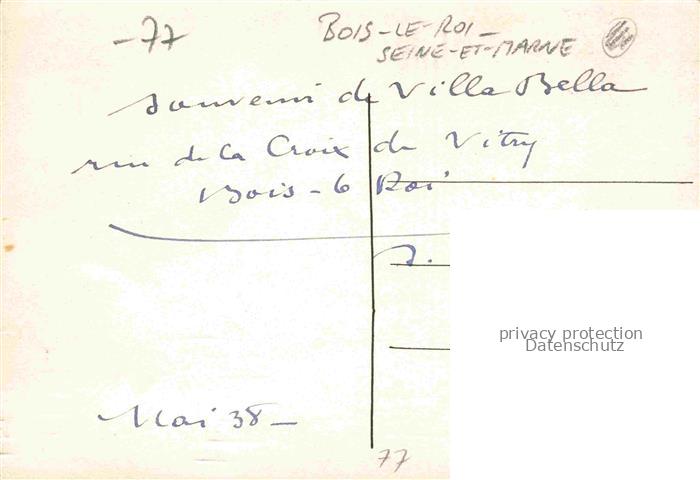 -77
BOIS-LE-ROI-
SEINE-ET-MARNE
Souvenir de Villa Bella
rue de la Croix de Vitry
Bois-le Roi
S.
privacy protection
Datenschutz
Mai 38-
77